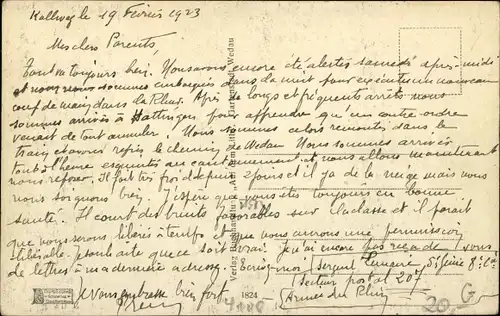 Kallweg le 19 Février 1923
Mes chers Parents,
Tout va toujours bien. Nous avons encore été alertés samedi après-midi
et nous nous sommes embarqués dans la nuit pour exécuter un nouveau
coup de main dans la Ruhr. Après de longs et fréquents arrêts nous
sommes arrivés à Hattingen pour apprendre qu'un contre-ordre
venait de tout annuler. Nous sommes alors remontés dans le
train et avons repris le chemin de Wedau. Nous sommes arrivés
tout à l'heure esquintés au cantonnement et nous allons maintenant
nous reposer. Il fait très froid depuis 2 jours et il y a de la neige mais nous
nous soignons bien. J'espère que vous êtes toujours en bonne
santé. Il court des bruits favorables sur la classe et il paraît
que nous serons libérés à temps et que nous aurons une permission
libérable. Je souhaite que ce soit vrai. Je n'ai encore pas reçu de vous
de lettres à ma dernière adresse. Ecrivez-moi: Sergent 5e Génie 8e Cie
Secteur postal 207
Armée du Rhin
Je vous embrasse bien fort
Verlag Wedau
1824
20,- G